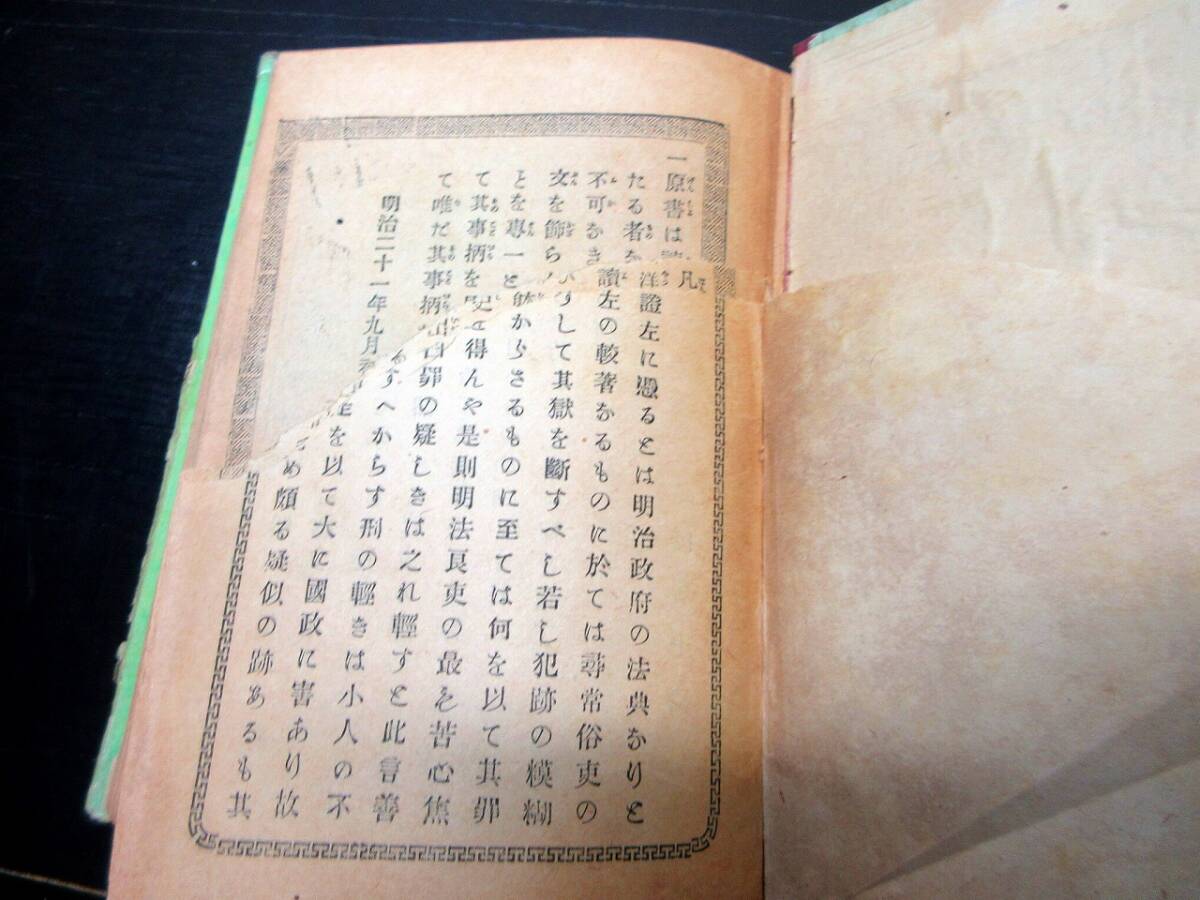 一原書は
たる者を
不可なき
文を飾ら
とを專一と
て其事柄を
て唯だ其事柄
明治二十一年九月
凡
洋證左に憑るとは明治政府の法典なりと
讀左の較著なるものに於ては尋常俗吏の
して其獄を斷すべし若し犯跡の糢糊
からさるものに至ては何を以て其罪
得んや是則明法良吏の最も苦心焦
罪の疑しきは之れ輕すと此言善
すへからす刑の輕きは小人の不
を以て大に國政に害あり故
め頗る疑似の跡あるも其